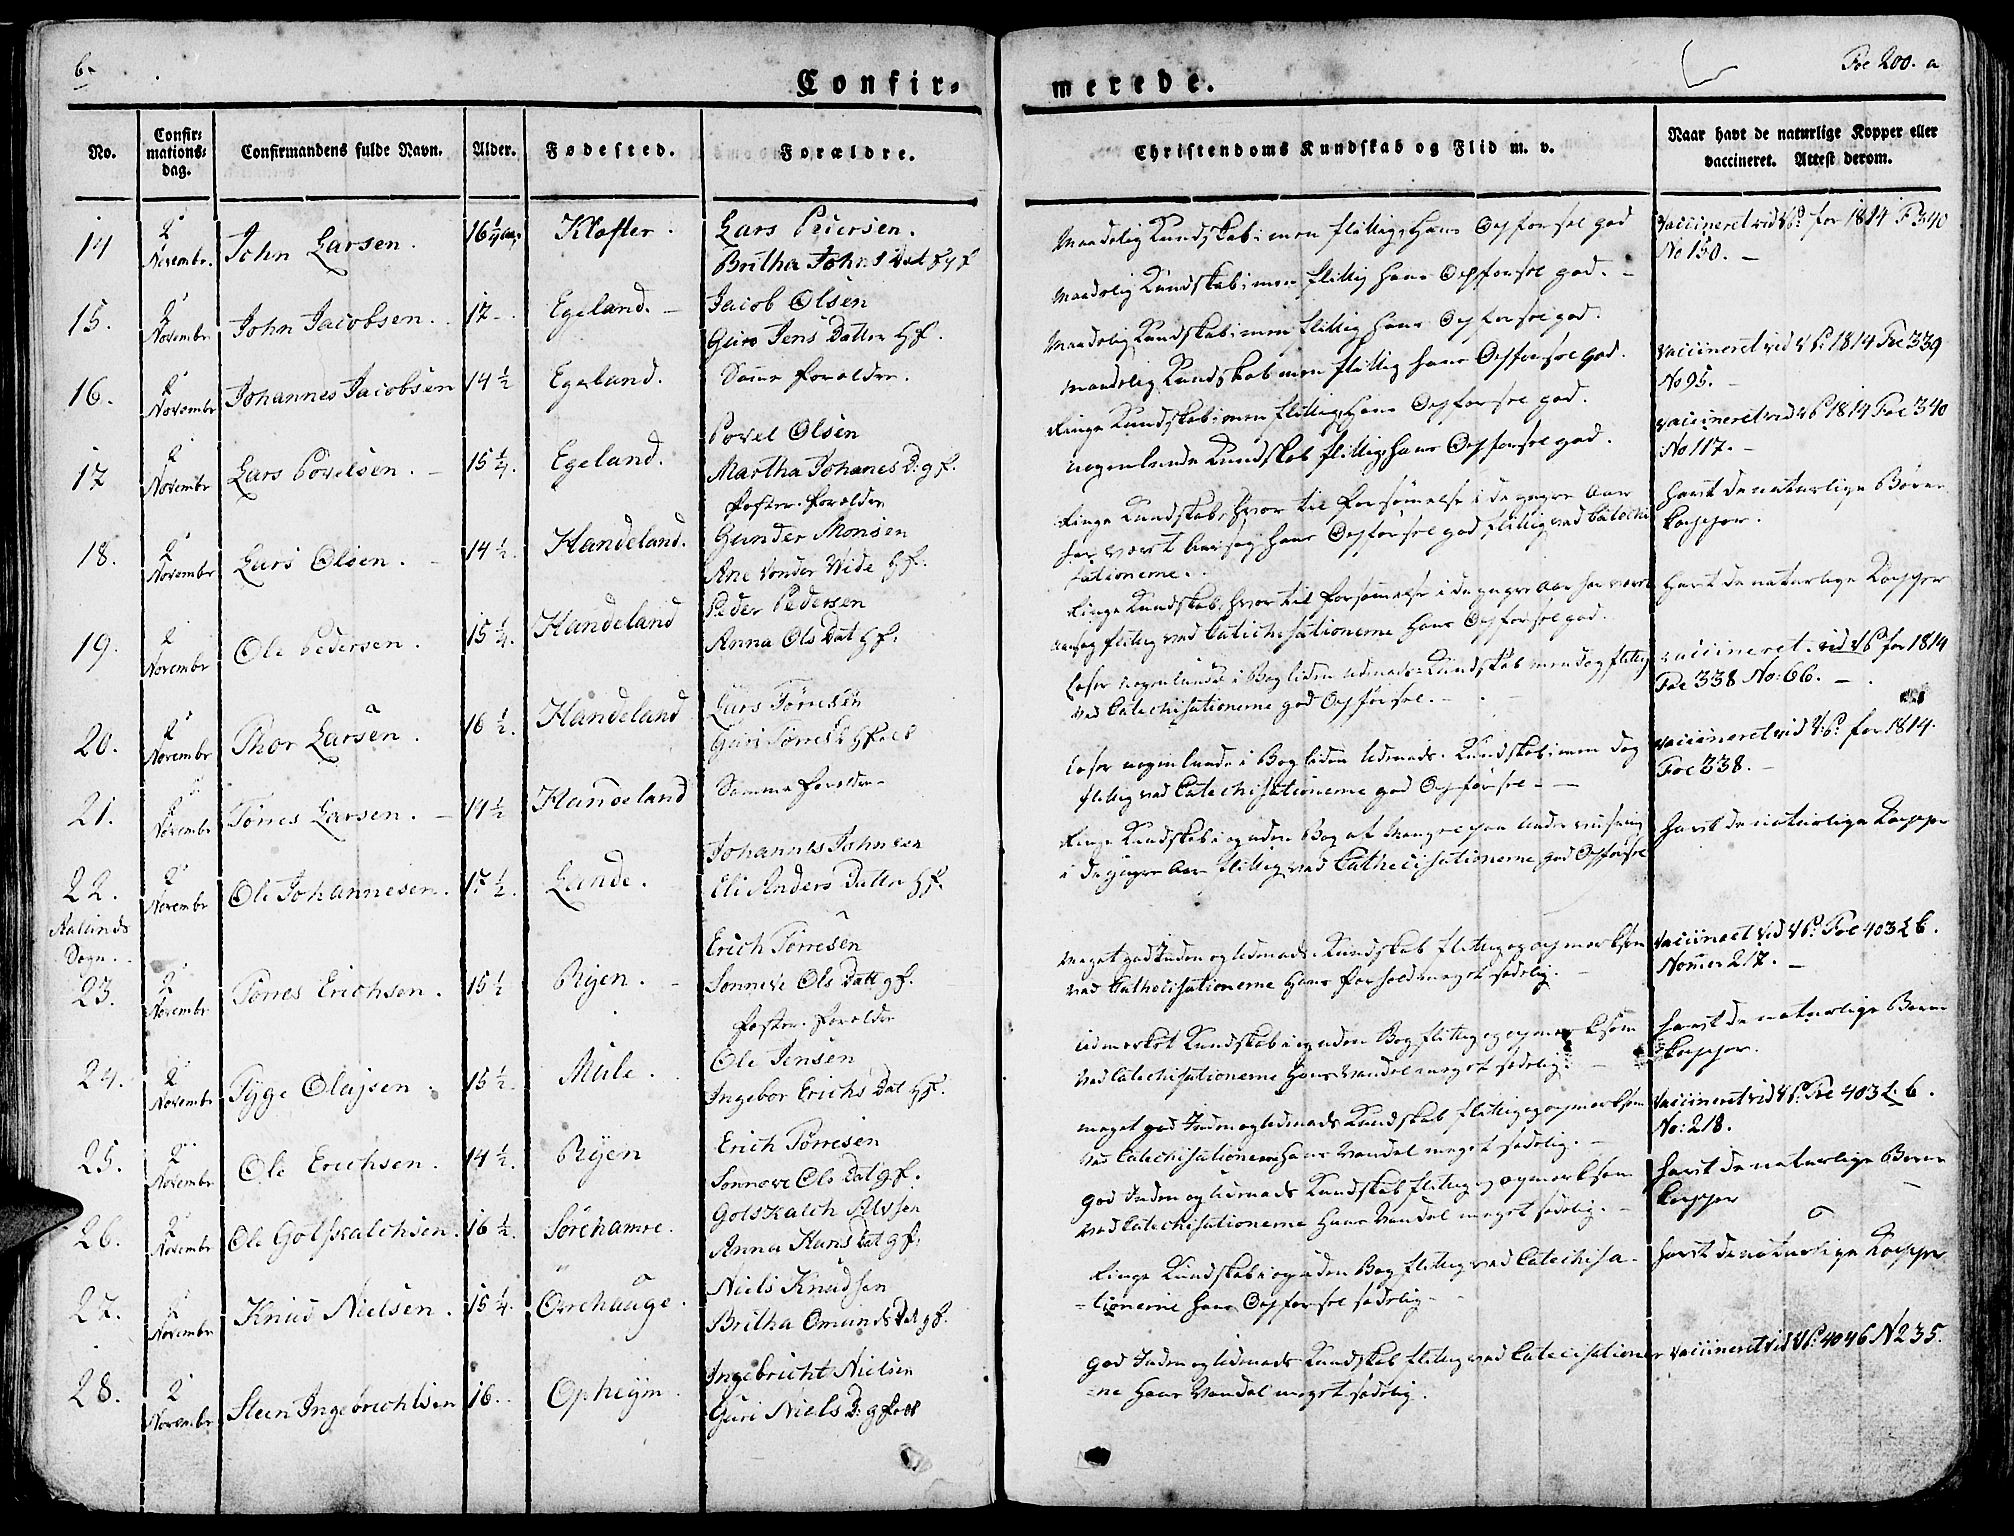 6.
Confir=
merede.
Foe 200. a
No.
Confir=
mations=
dag.
Confirmandens fulde Navn.
Alder.
Fødested.
Forældre.
Christendoms Kundskab og Flid m. v.
Naar havt de naturlige Kopper eller
vaccineret. Attest derom.
14
2
Novembr.
John Larsen.
16 1/4
Kloster.
Lars
Britha Johns Dat
Maadelig Kundskab; men flittig, hans Opførsel god
Vaccineret vid for 1814 F 340
No 150. –
15.
2
Novembr
John Jacobsen.
17
Egeland. –
Jacob Olsen
Guro Jens Datter
Maadelig Kundskab; men flittig hans Opførsel god. –
16.
2
Novembr
Johannes Jacobsen
14 1/2
Egeland.
Samme forældre.
Maadelig Kundskab; men flittig hans Opførsel god.
Maadelig Kundskab men flittig hans Opførsel god.
vaccineret vid 1814 Foe 339
No 95. –
17
2
Novembr
Lars Povelsen. –
15 1/4.
Egeland.
Povel Olsen
Martha Johanes D: g f.
Ringe Kundskab; men flittig, hans Opførsel god.
nogenlunde Kundskab flittig, hans Opførsel god.
vaccineret vid 1814 Foe 340
No 117. –
18.
2
Novembr
Lars Olsen. –
14 1/2.
Handeland.
foster-forældre
Gunder Monsen
Ane Vonder Wide
Ringe Kundskab, hvor til forsømelse i de yngre Aar
har vært Aarsag, hans Opførsel god flittig ved Catechi
sationerne.
havt de naturlige Børne
kopper.
19.
2
Novembr
Ole Pedersen.
15 1/4.
Handeland
Peder Pedersen
Anna Ols Dat
Ringe Kundskab, hvor til forsømelse i de yngre Aar har være
Aarsag flittig ved Catechisationerne hans Opførsel god.
havt de naturlige Kopper
20.
2
Novembr
Thor Larsen.
16 1/2
Handeland
Lars Tørresen
Guri Tørres
Læser nogenlunde i Bog liden Udenads-Kundskab men dog flittig
ved Catechisationerne god Opførsel. –
vaccineret. vid for 1814
Foe 338 No: 66. –
21.
2
Novembr
Tørres Larsen. –
14 1/2
Handeland
Samme forældre
Læser nogenlunde i Bog liden Udenads-Kundskab; men dog
flittig ved Catechisationerne god Opførsel –
vaccineret vid for 1814.
Foe 338. –
22.
2
Novembr
Ole Johannesen.
17 1/2.
Lande.
Johannes Johnsen
Eli Anders Datter
Ringe Kundskab i og uden Bog af Mangel paa Underviisning
i de yngre Aar flittig ved Cathecisationerne, god Opførsel
havt de naturlige Kopper
Sogn.
23.
2
Novembr
Tørres Erichsen.
15 1/2
Ryen. –
Erich Tørresen
Sonneve Ols Datt g f.
Meget god Inden og Udenads-Kundskab flittig og opmerksom
ved Cathecisationerne hans forhold meget sædelig. –
Vaccineret vid Foe 403 L b.
Nomer 217. –
24.
2
Novembr
Tyge Olajsen.
15 1/2.
Mule.
foster-forældre
Ole Jensen
Ingebor Erichs Dat
Udmerket Kundskab i og uden Bog flittig og opmerksom
ved Catechisationerne hans Vandel meget sædelig. –
havt de naturlige Børne
kopper.
25.
2
Novembr
Ole Erichsen.
14 1/2.
Ryen
Erich Tørresen
Sonneve Ols Dat g f.
meget god Inden og Udenads Kundskab flittig og opmerksom
ved Catechisationerne hans Vandel meget sædelig. –
Vaccineret vid Foe 403 L. b.
No: 218.
26.
2
Novembr
Ole Golskalchsen.
16 1/2.
Sørehamre.
Golskalch
Anna Hans Dat g f.
god Inden og Udenads Kundskab flittig og opmerksom
ved Catechisationerne hans Vandel meget sædelig. –
havt de naturlige Børne
kopper
27.
2
Novembr
Knud Nielsen.
15 1/4.
Ørrehauge.
Niels Knudsen
Britha Omunds Dat g f.
Ringe Kundskab i og uden Bog flittig ved Catechisa-
=tionerne hans Opførsel sædelig.
havt de naturlige Kopper
28.
2
Novembr
Steen Ingebrichtsen
16.
Opheym.
Ingebricht Nielsen
Guri Niels D: g
god Inden og Udenads Kundskab flittig ved Catecisationer
=ne hans Vandel meget sædelig.
vaccineret vid 404 b N 235.